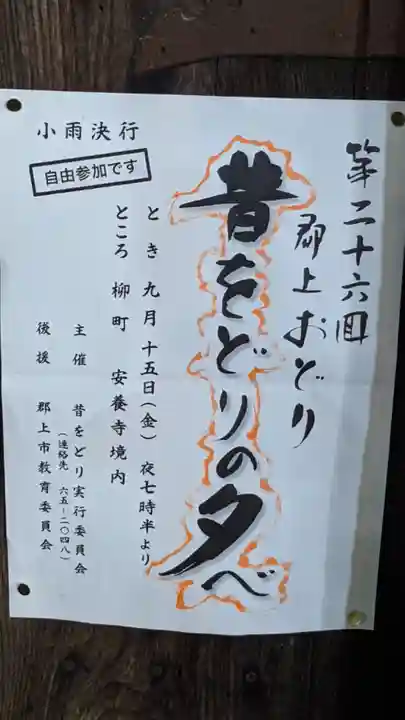 第二十六回
郡上おどり
昔をどりの夕べ
とき 九月十五日(金) 夜七時半より
ところ 柳町 安養寺境内
主催 昔をどり実行委員会
(連絡先 六五-二〇四八)
後援 郡上市教育委員会
小雨決行
自由参加です